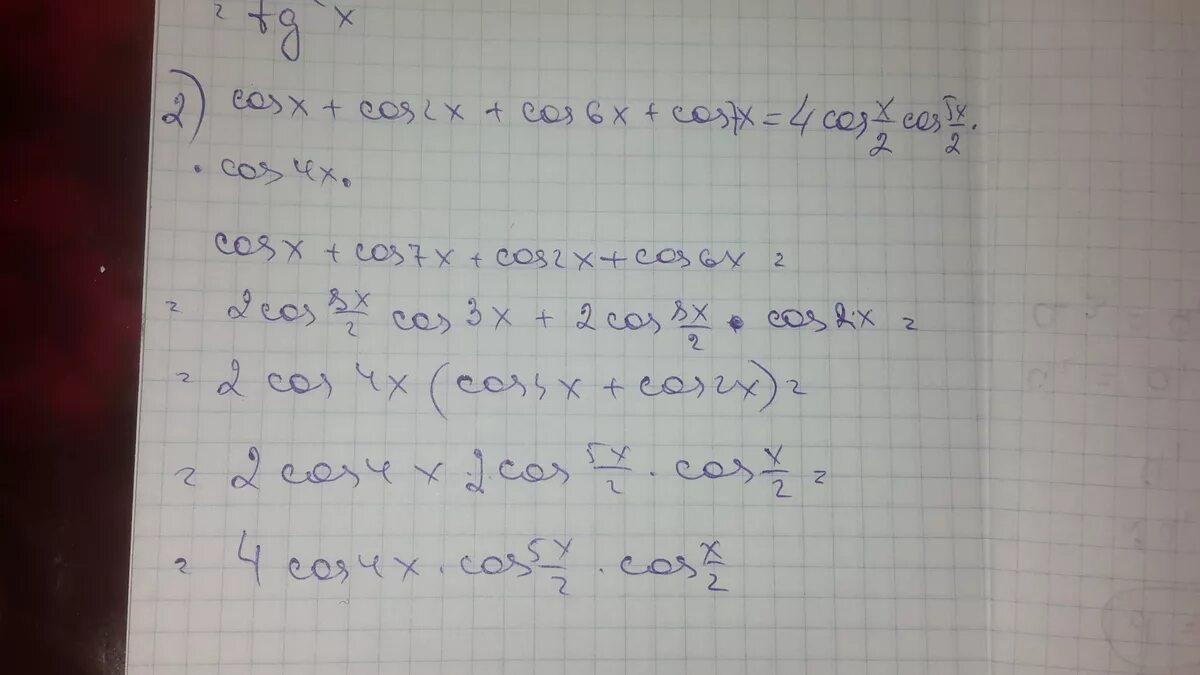 = tg x
2) cosx + cos2x + cos6x + cos7x = 4 cos x/2 cos 5x/2 ·
· cos 4x.
cosx + cos7x + cos2x + cos6x =
= 2cos 8x/2 cos 3x + 2cos 8x/2 · cos 2x =
= 2 cos 4x (cos3x + cos2x) =
= 2 cos4x · 2 cos 5x/2 · cos x/2 =
= 4 cos4x · cos 5x/2 · cos x/2